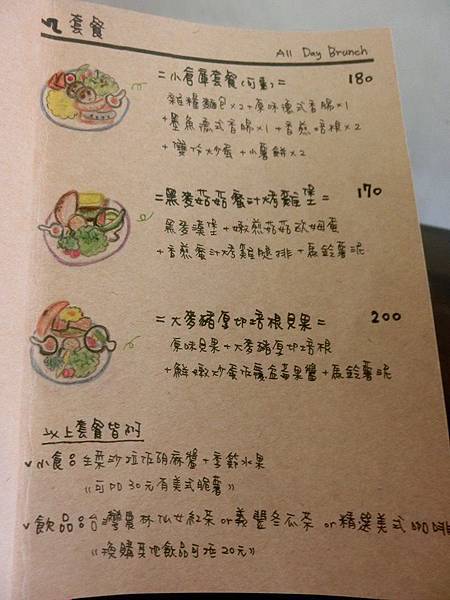 套餐
All Day Brunch
=小倉庫套餐(可量)= 180
雜糧麵包x2+原味德式香腸x1
+墨魚德式香腸x1+香煎培根x2
+雙份炒蛋+小薯餅x2
=黑麥菇菇蜜汁烤雞堡= 170
黑麥漢堡+嫩煎菇菇歐姆蛋
+香煎蜜汁烤雞腿排+馬鈴薯泥
=大麥豬厚切培根貝果= 200
原味貝果+大麥豬厚切培根
+鮮嫩炒蛋佐蔓越莓果醬+馬鈴薯泥
以上套餐皆附
✓小食品:生菜沙拉佐胡麻醬+季節水果
《可加30元有美式脆薯》
✓飲品:台灣農林仙女紅茶or義豐冬瓜茶 or 精選美式咖啡
《換購其他飲品可折20元》